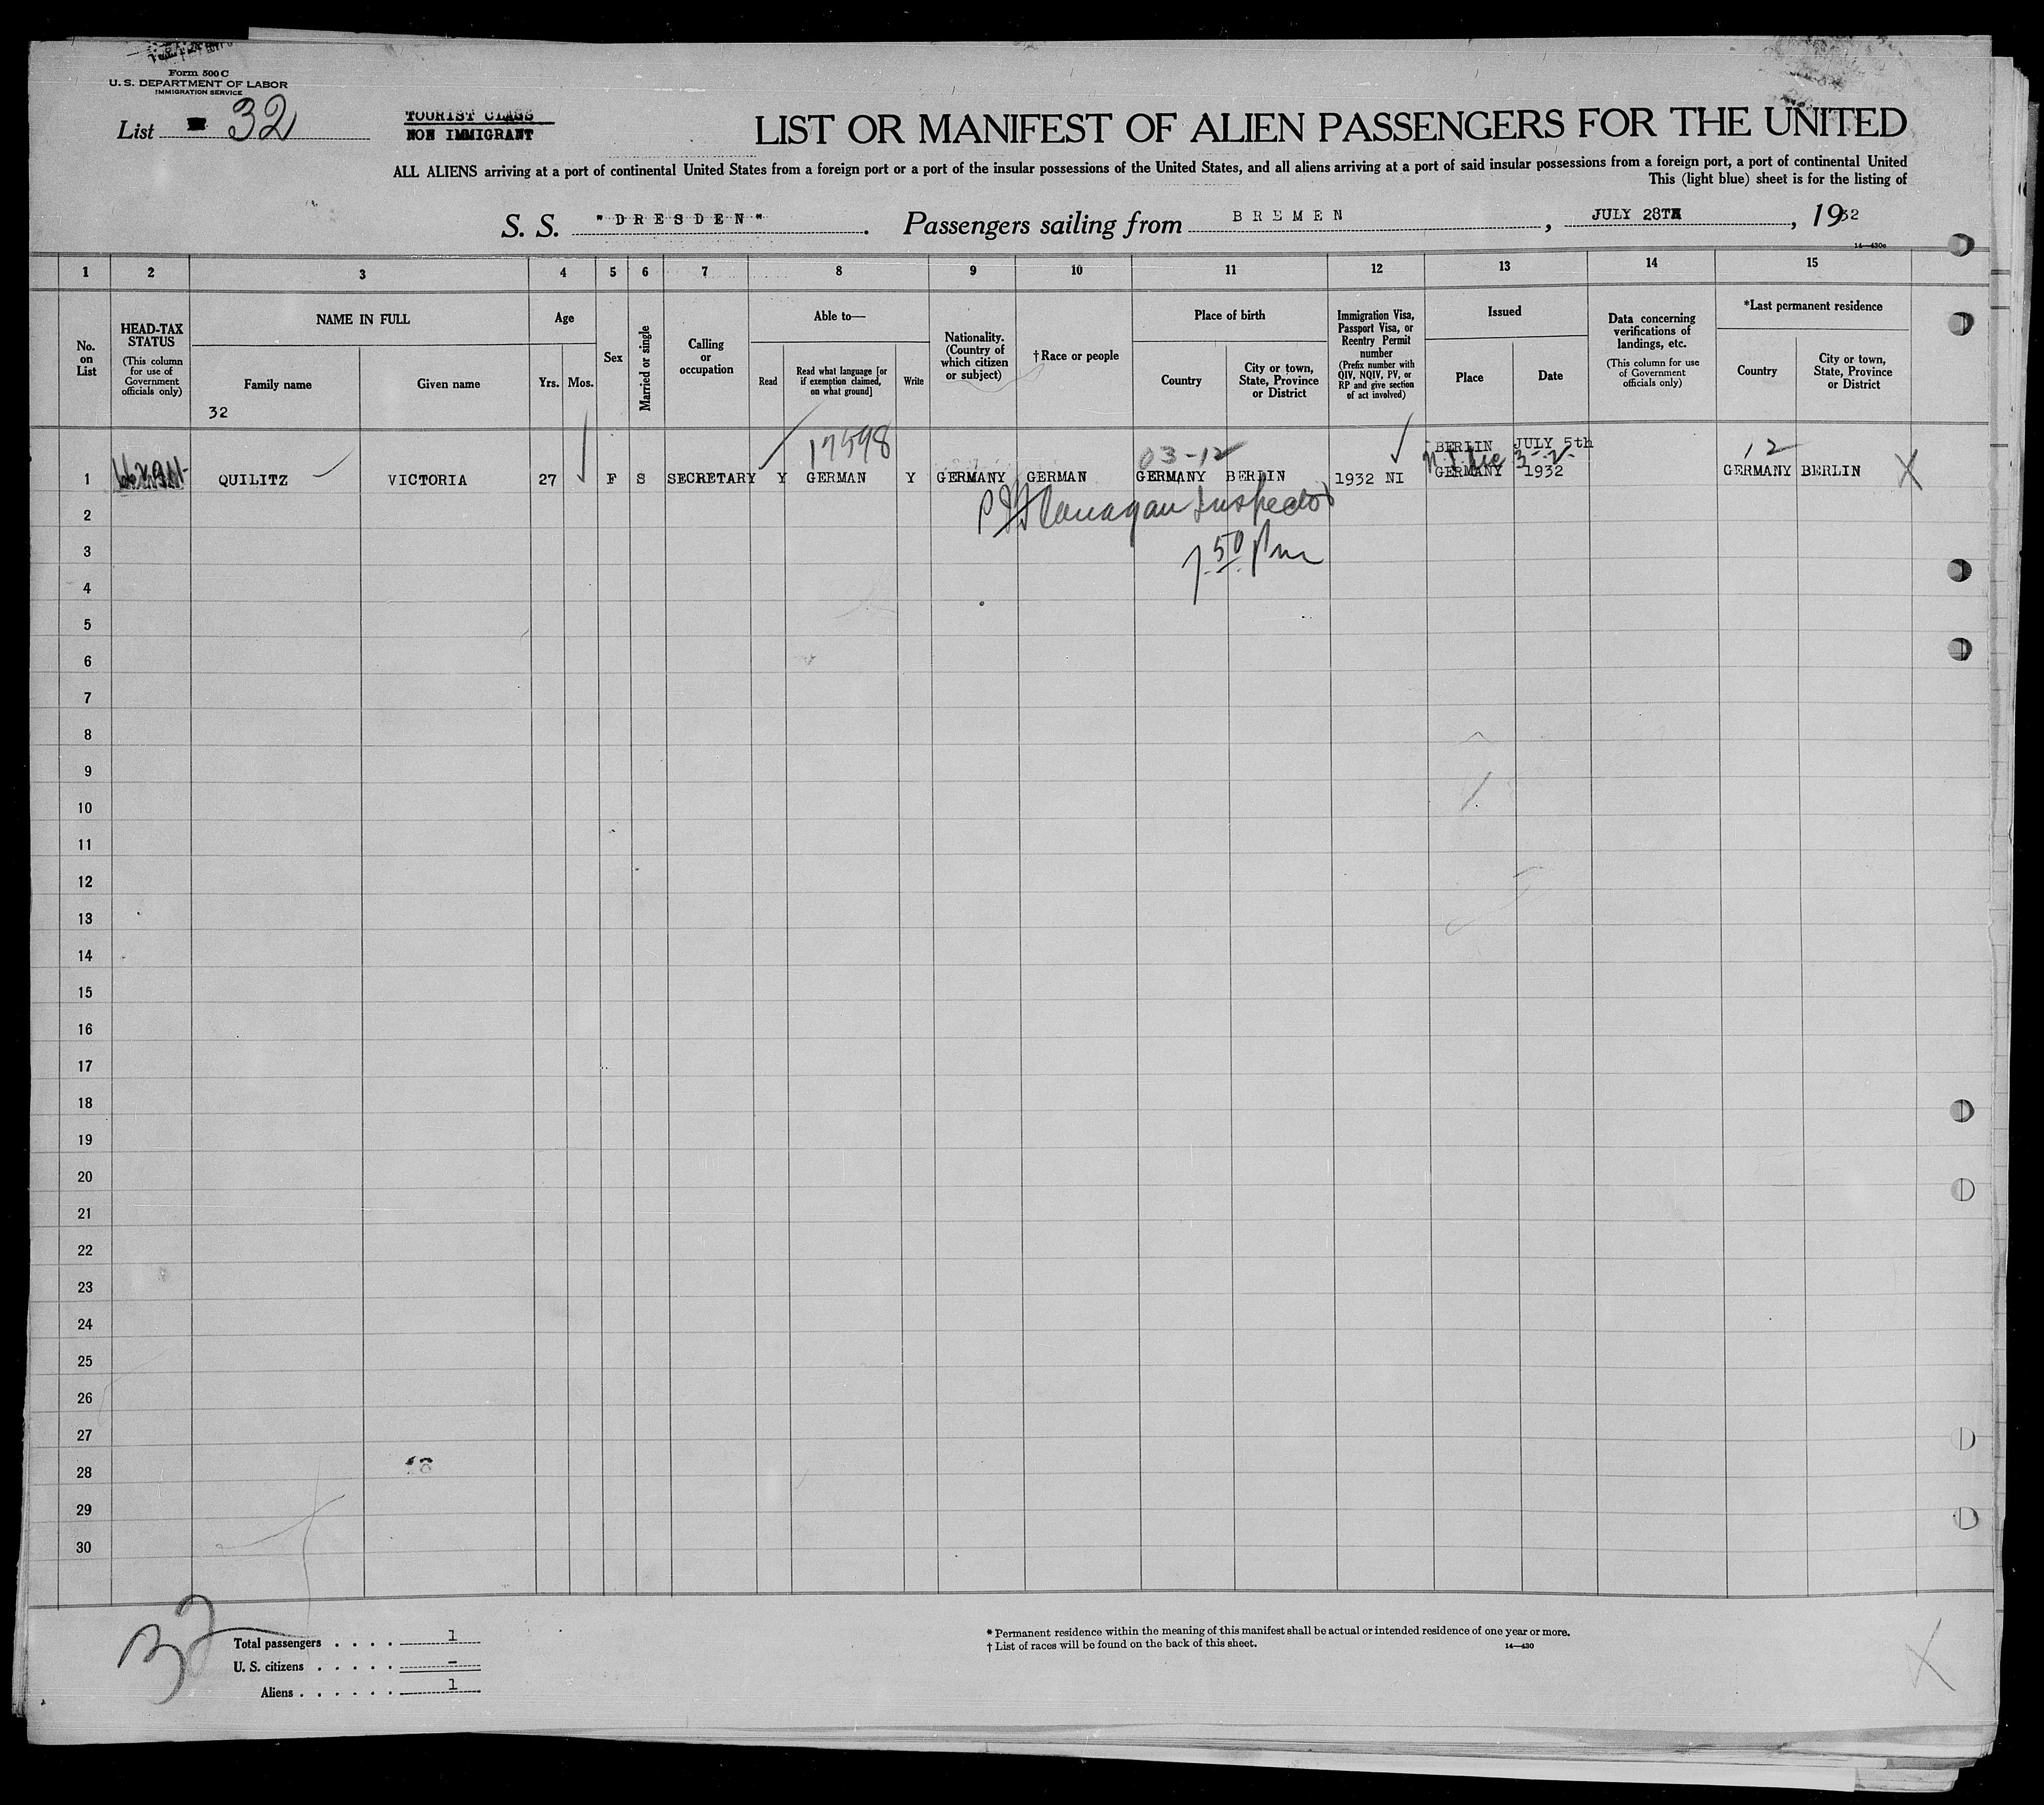 Form 500 C
U. S. DEPARTMENT OF LABOR
IMMIGRATION SERVICE
List 32
TOURIST CLASS
NON IMMIGRANT
LIST OR MANIFEST OF ALIEN PASSENGERS FOR THE UNITED
ALL ALIENS arriving at a port of continental United States from a foreign port or a port of the insular possessions of the United States, and all aliens arriving at a port of said insular possessions from a foreign port, a port of continental United
This (light blue) sheet is for the listing of
S. S. "DRESDEN". Passengers sailing from BREMEN, JULY 28TH, 1932
14—430c
1 2 3 4 5 6 7 8 9 10 11 12 13 14 15
No. on List
HEAD-TAX STATUS
(This column for use of Government officials only)
NAME IN FULL
Family name
Given name
32
Age
Yrs.
Mos.
Sex
Married or single
Calling or occupation
Able to—
Read
Read what language [or if exemption claimed, on what ground]
Write
Nationality. (Country of which citizen or subject)
†Race or people
Place of birth
Country
City or town, State, Province or District
Immigration Visa, Passport Visa, or Reentry Permit number
(Prefix number with QIV, NQIV, PV, or RP and give section of act involved)
Issued
Place
Date
Data concerning verifications of landings, etc.
(This column for use of Government officials only)
*Last permanent residence
Country
City or town, State, Province or District
17598 03-12 BERLIN JULY 5th 12
1 QUILITZ VICTORIA 27 F S SECRETARY Y GERMAN Y GERMANY GERMAN GERMANY BERLIN 1932 NI GERMANY 1932 GERMANY BERLIN X
2 Flanagan Inspector
3 50 pm
4
5
6
7
8
9
10
11
12
13
14
15
16
17
18
19
20
21
22
23
24
25
26
27
28
29
30
32
Total passengers . . . . 1
U. S. citizens . . . . . –
Aliens . . . . . . 1
* Permanent residence within the meaning of this manifest shall be actual or intended residence of one year or more.
† List of races will be found on the back of this sheet.
14—430
X